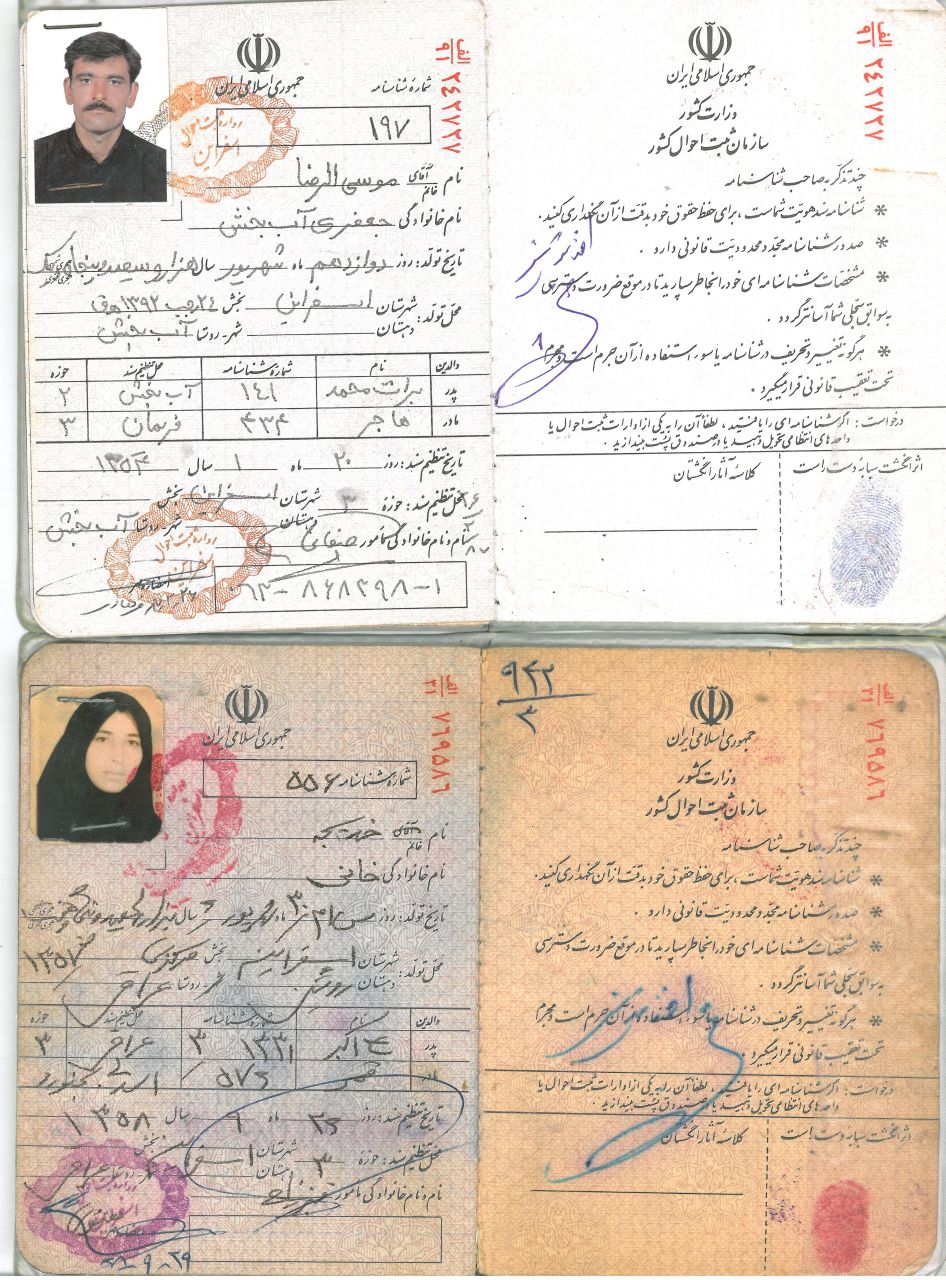 جمهوری اسلامی ایران
شمارهٔ شناسنامه
۱۹۷
الف ۹۱ ۲۴۲۷۲۷
نام آقای خانم موسی الرضا
نام خانوادگی جعفری آب بخش
تاریخ تولد: روز دوازدهم ماه شهریور سال هزار و سیصد و پنجاه و
محل تولد: شهرستان اسفراین بخش ۲۴ رجب ۱۳۹۲ ه ق
دهستان شهر - روستا آب بخش
والدین نام شمارهٔ شناسنامه محل تنظیم سند حوزه
پدر برات محمد ۱۴۱ آب بخش ۲
مادر هاجر ۴۳۴ فریمان ۳
تاریخ تنظیم سند: روز ۲۰ ماه ۱ سال ۱۳۵۴
محل تنظیم سند: حوزهٔ ۳ شهرستان اسفراین بخش
دهستان شهر - روستا آب بخش
نام و نام خانوادگی مأمور صفائی
۰۶۳-۸۶۸۳۹۸-۱
اداره ثبت احوال اسفراین
الف ۹۱ ۲۴۲۷۲۷
جمهوری اسلامی ایران
وزارت کشور
سازمان ثبت احوال کشور
چند تذکر به صاحب شناسنامه
* شناسنامه سند هویت شماست، برای حفظ حقوق خود به دقت از آن نگهداری کنید.
* صدور شناسنامه مجدد محدودیت قانونی دارد.
* مشخصات شناسنامه‌ای خود را بخاطر بسپارید تا در موقع ضرورت دسترسی
به سوابق سجلی شما آسانتر گردد.
* هرگونه تغییر و تحریف در شناسنامه یا سوء استفاده از آن جرم است و مجرم
تحت تعقیب قانونی قرار میگیرد.
درخواست: اگر شناسنامه‌ای را یافتید، لطفاً آن را به یکی از ادارات ثبت احوال یا
واحدهای انتظامی تحویل دهید یا در صندوق پست بیندازید.
اثر انگشت سبابه دست راست
کلاسه آثار انگشتان
جمهوری اسلامی ایران
الف ۳۱ ۷۶۹۵۸۶
شمارهٔ شناسنامه ۵۵۶
نام آقای خانم خدیجه
نام خانوادگی خانی
تاریخ تولد: روز ماه شهریور سال
۱۳۵۷
محل تولد: شهرستان اسفراین بخش مرکزی
دهستان روئین شهر - روستا عراقی
والدین نام شمارهٔ شناسنامه محل تنظیم سند حوزه
پدر ۱۳۳۱ ۳ عراقی ۳
مادر ۵۷۶ بجنورد
تاریخ تنظیم سند: روز ماه ۹ سال ۱۳۵۸
محل تنظیم سند: حوزهٔ ۳ شهرستان بخش
دهستان شهر - روستا عراقی
نام و نام خانوادگی مأمور
۹۴۲
۳
الف ۳۱ ۷۶۹۵۸۶
جمهوری اسلامی ایران
وزارت کشور
سازمان ثبت احوال کشور
چند تذکر به صاحب شناسنامه
* شناسنامه سند هویت شماست، برای حفظ حقوق خود به دقت از آن نگهداری کنید.
* صدور شناسنامه مجدد محدودیت قانونی دارد.
* مشخصات شناسنامه‌ای خود را بخاطر بسپارید تا در موقع ضرورت دسترسی
به سوابق سجلی شما آسانتر گردد.
* هرگونه تغییر و تحریف در شناسنامه یا سوء استفاده از آن جرم است و مجرم
تحت تعقیب قانونی قرار میگیرد.
درخواست: اگر شناسنامه‌ای را یافتید، لطفاً آن را به یکی از ادارات ثبت احوال یا
واحدهای انتظامی تحویل دهید یا در صندوق پست بیندازید.
اثر انگشت سبابه دست راست
کلاسه آثار انگشتان